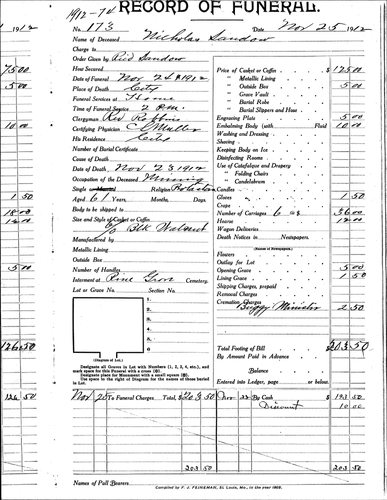 1912-74
RECORD OF FUNERAL.
1912
No. 173
Date Nov 25 1912
Name of Deceased Nicholas Sandow
Charge to
Order Given by Reid Sandow
Hour Secured
Date of Funeral Nov 26 1912
Place of Death City
Funeral Services at Home
Time of Funeral Service 2 P.M.
Clergyman Rev Robbins
Certifying Physician C Muller
His Residence City
Number of Burial Certificate
Cause of Death
Date of Death Nov 23 1912
Occupation of the Deceased Mining
Single Religion Protestant
Aged 61 Years, Months, Days.
Body to be shipped to
Size and Style of Casket or Coffin
6/ Blk Walnut
Manufactured by
Metallic Lining
Outside Box
Number of Handles
Interment at Pine Grove Cemetery.
Lot or Grave No. Section No.
1.
2.
3.
4.
5.
6.
(Diagram of Lot.)
Designate all Graves in Lot with Numbers (1, 2, 3, 4, etc.), and
mark space for this Funeral with a cross (⊕).
Designate place for Monument with a small square (⊞).
Use space to the right of Diagram for the names of those buried
in Lot.
Price of Casket or Coffin $175 00
" Metallic Lining
" Outside Box 5 00
" Grave Vault
" Burial Robe
" Burial Slippers and Hose
Engraving Plate 5 00
Embalming Body (with Fluid 10 00
Washing and Dressing
Shaving
Keeping Body on Ice
Disinfecting Rooms
Use of Catafalque and Drapery
" Folding Chairs
" Candelabrum
Candles
Gloves 1 50
Crape
Number of Carriages 6 @ $ 36 00
Hearse 12 00
Wagon Deliveries
Death Notices in Newspapers
(Names of Newspapers.)
Flowers
Outlay for Lot
Opening Grave 5 00
Lining Grave 1 50
Shipping Charges, prepaid
Removal Charges
Cremation Charges
Buggy Minister 2 50
Total Footing of Bill 203 50
By Amount Paid in Advance
Balance
Entered into Ledger, page or below.
Nov 26 To Funeral Charges Total, $ 203 50 Nov 22 By Cash $ 193 50
Discount 10 00
203 50 203 50
Names of Pall Bearers
Compiled by F. J. FEINEMAN, St. Louis, Mo., in the year 1905.
75 00
5 00
10 00
1 50
18 00
12 00
5 00
126 50
126 50